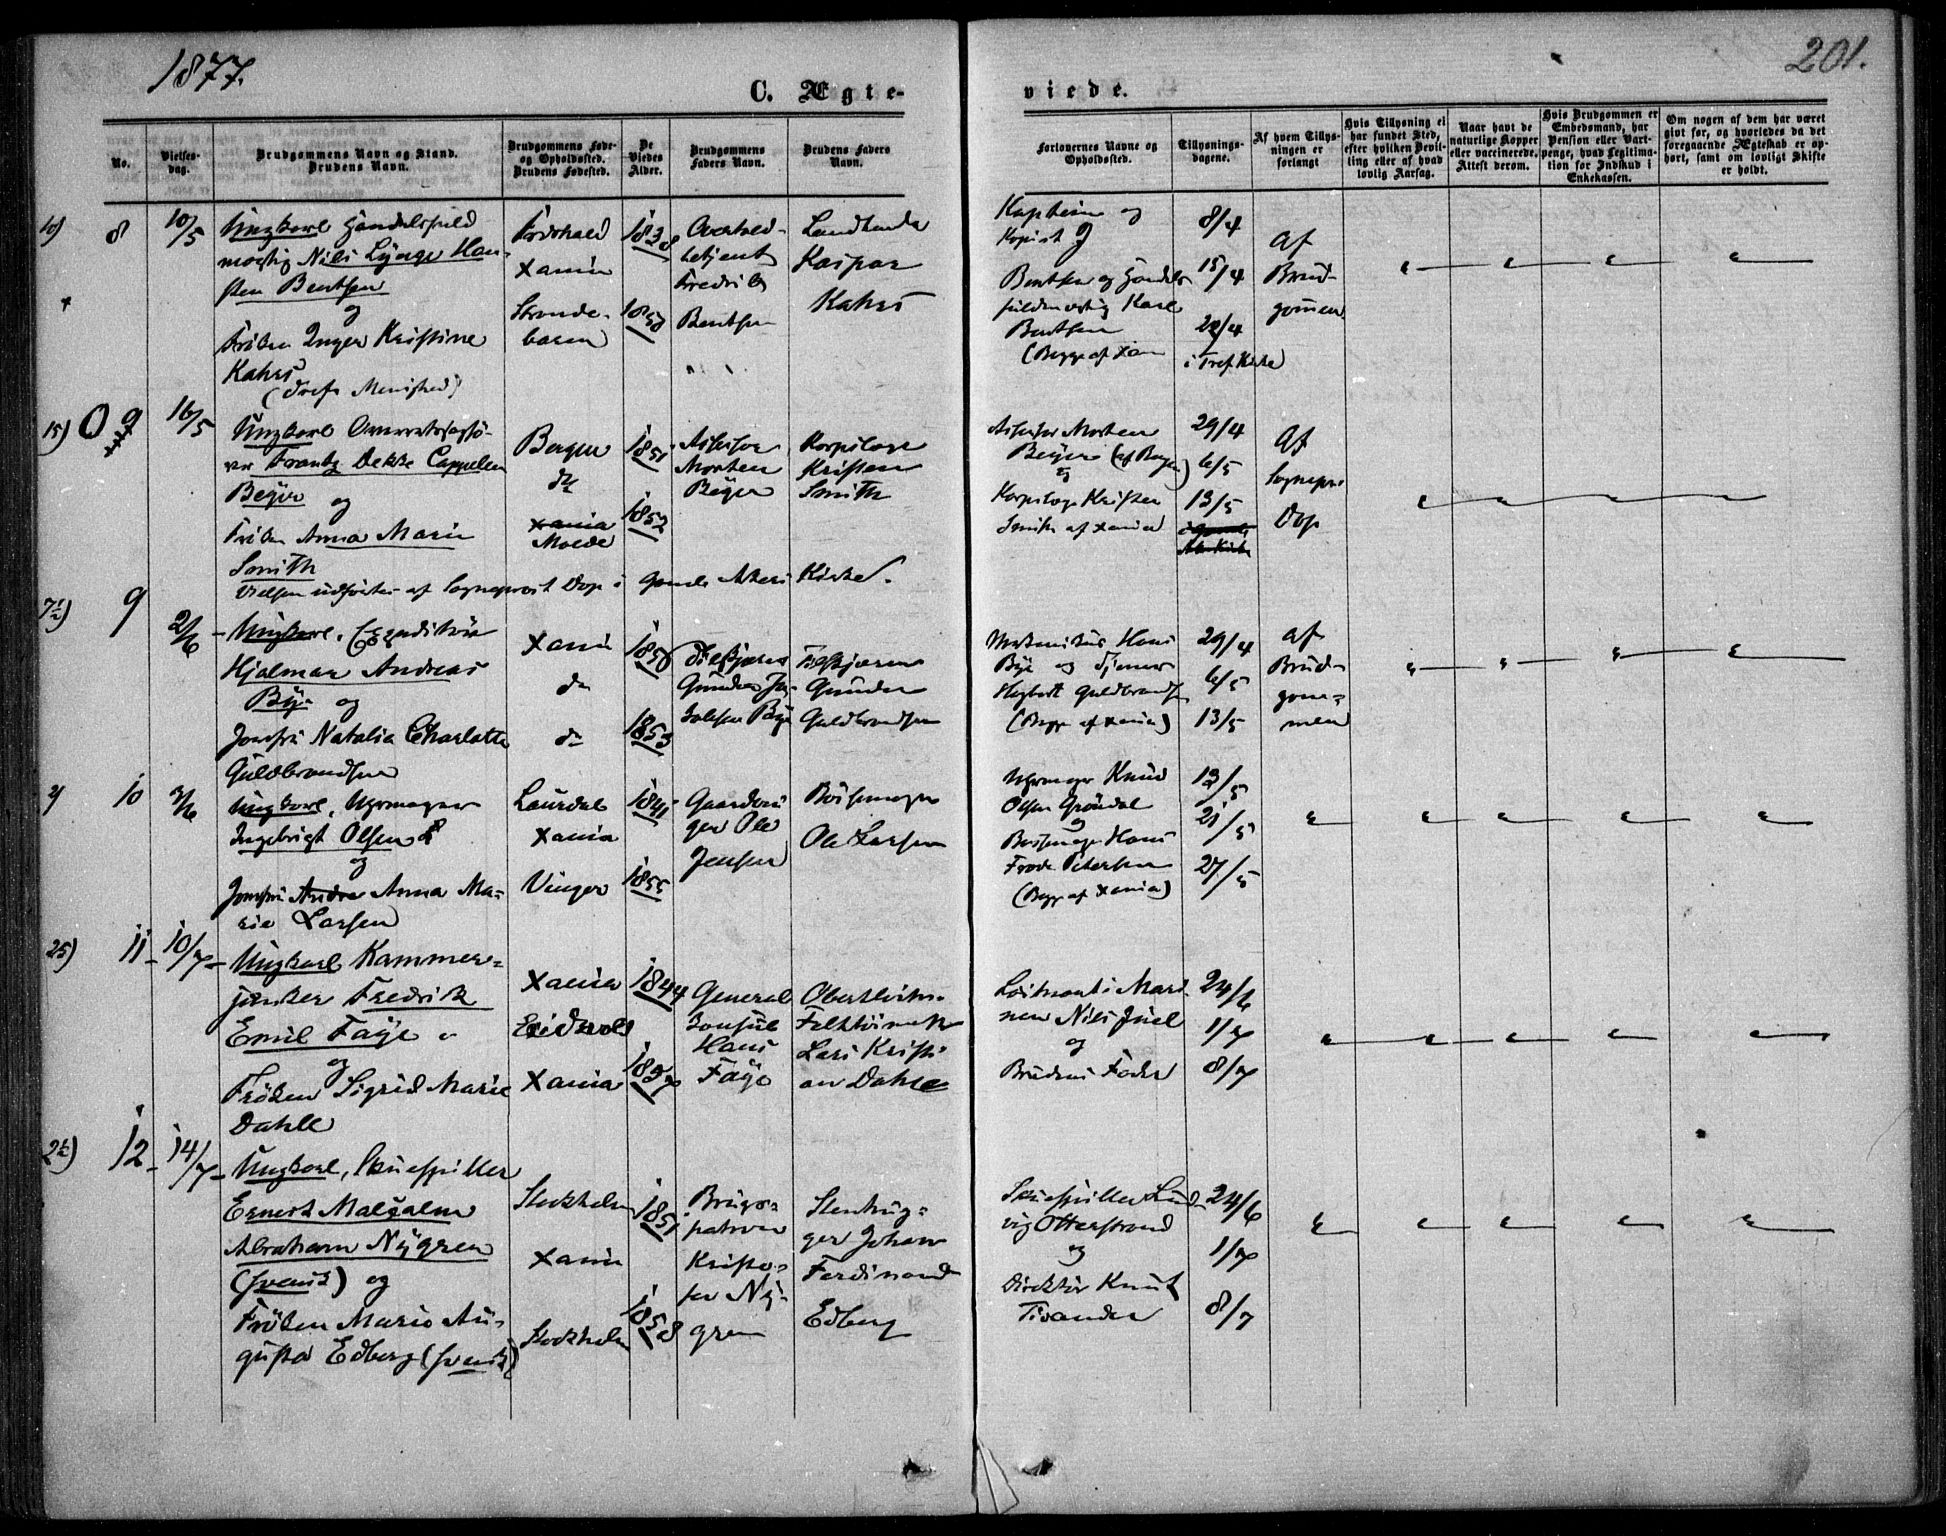 1877.
201.
C. Ægte-
viede.
No.
Vielses-
dag.
Brudgommens Navn og Stand.
Brudens Navn.
Brudgommens Føde-
og Opholdssted.
Brudens Fødested.
De
Viedes
Alder.
Brudgommens
Faders Navn.
Brudens Faders
Navn.
Forlovernes Navne og
Opholdssted.
Tillysnings-
dagene.
Af hvem Tillys-
ningen er
forlangt
Hvis Tillysning ei
har fundet Sted,
efter hvilken Bevil-
ling eller af hvad
lovlig Aarsag.
Naar havt de
naturlige Kopper
eller vaccinerede.
Attest derom.
Hvis Brudgommen er
Embedsmand, har
Pension eller Vart-
penge, hvad Legitima-
tion for Indskud i
Enkekassen.
Om nogen af dem har været
givt før, og hvorledes da det
foregaaende Ægteskab er op-
hørt, samt om lovligt Skifte
er holdt.
8
10/5
Ungkarl Handelsfuld
mægtig Nils Lynge Han-
sen Bentsen
og
Frøken Inger Kristine
Kahrs
Xania
1838
1850
Fredrik
Bentsen
Kaspar
Kahrs
Kaptein og
Kopist
Bentsen og Handels
fuldmægtig Karl
Bentsen
(Begge af Xania
8/4
15/4
22/4
Af
Brud-
gommen
15)
9
16/5
Ungkarl Overretssagfø-
rer Frantz Dekke Cappelen
Beyer
og
Frøken Anna Marie
Smith
Vielsen udførtes af Sogneprest Dop i Gamle Akers Kirke.
Bergen
do
Xania
Molde
1851
1852
Assessor
Morten
Beyer
Kristen
Smith
Assessor Morten
Beyer (af Bergen)
og
Kristen
Smith af Xania
29/4
6/5
13/5
Af
Sognepr.
Dop
9
2/6
Ungkarl, Expeditør
Hjalmar Andreas
Bye og
Jomfru Natalia Charlotte
Guldbrandsen
Xania
do
do
1850
1853
Gunder
Guldbrandsen
Hans
Bye og Tjener
Guldbrandsen
(Begge af Xania)
29/4
6/5
13/5
af
Brud-
gom-
men
10
3/6
Ungkarl, Uhrmager
Ingebrigt Olsen
og
Jomfru Andre Anna Ma-
rie Larsen
Laurdal
Xania
Vinger
1841
1855
Gaardbru
ger Ole
Jensen
Bøssemager
Ole Larsen
Uhrmager Knud
Olsen Grøndal
og
Bøssemager Hans
Frode Petersen
(Begge af Xania)
13/5
21/5
27/5
25)
11
10/7
Ungkarl Kammer-
junker Fredrik
Emil Faye
og
Frøken Sigrid Marie
Dahll
Xania
Eidsvold
Xania
1844
1857
General
konsul
Hans
Faye
Lars Kristi
an Dahll
Løitnant i Mari
nen Nils Juel
og
Brudens Fader
24/6
1/7
8/7
12
14/7
Ungkarl, Skuespiller
Ernest Malcolm
Abraham Nygren
(svensk) og
Frøken Marie Au-
gusta Edberg (svensk)
Stockholm
Xania
Stockholm
1851
1858
Brugs-
patron
Kristo-
fer Ny-
gren
Stenhug-
ger Johan
Ferdinand
Edberg
Skuespiller Lud
vig Otterstrand
og
Direktør Knut
Tivander
24/6
1/7
8/7